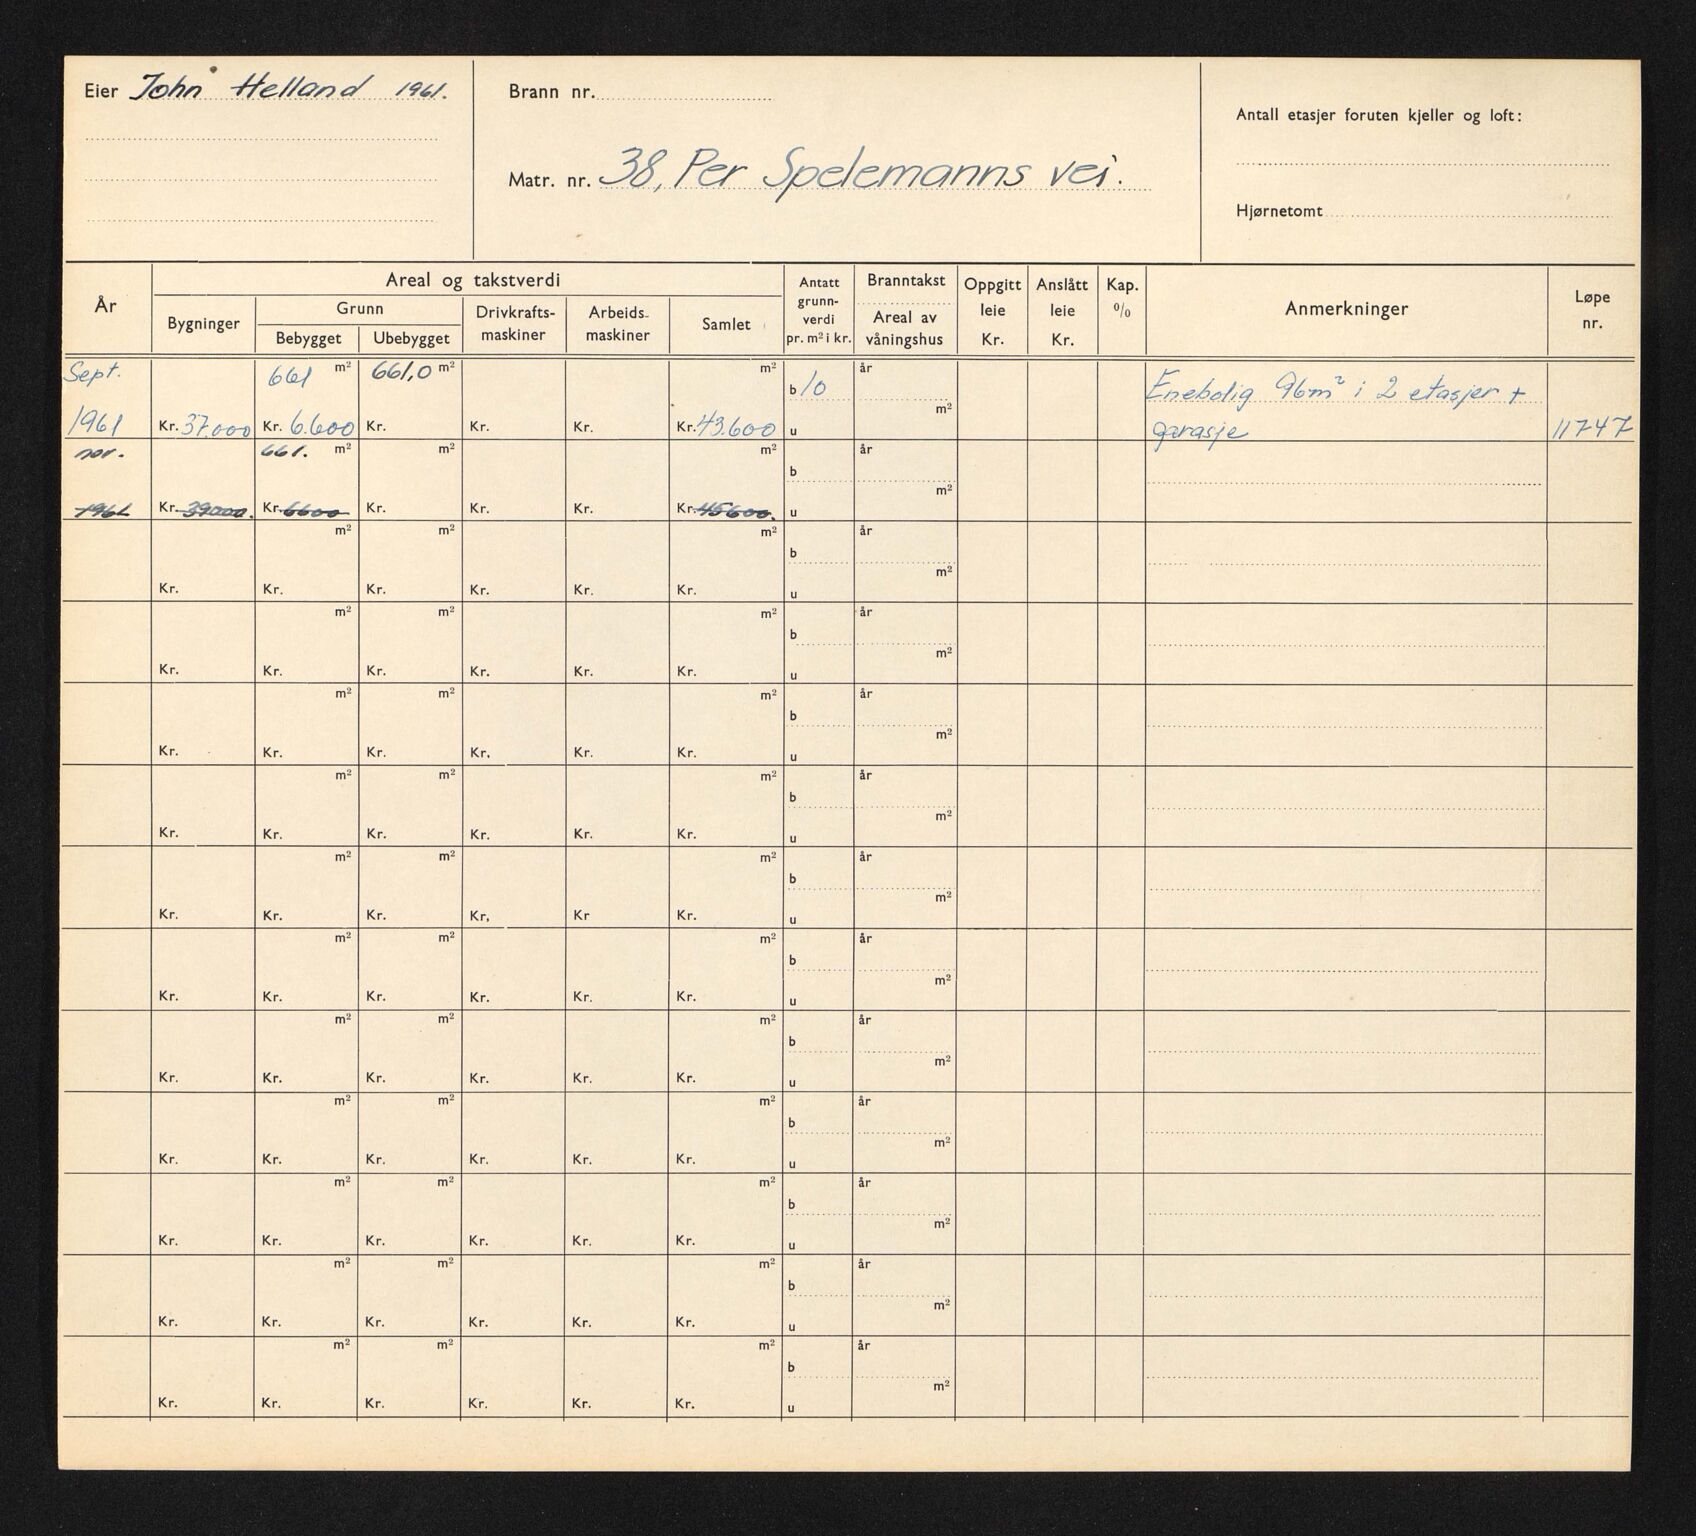 Eier John Helland 1961.
Brann nr.
Matr. nr. 38, Per Spelemanns vei.
Antall etasjer foruten kjeller og loft:
Hjørnetomt
År
Areal og takstverdi
Bygninger
Grunn
Bebygget Ubebygget
Drivkrafts-
maskiner
Arbeids-
maskiner
Samlet
Antatt
grunn-
verdi
pr. m² i kr.
Branntakst
Areal av
våningshus
Oppgitt
leie
Kr.
Anslått
leie
Kr.
Kap.
%
Anmerkninger
Løpe
nr.
Sept. 661 m² 661,0 m² m² b 10 år Enebolig 96m² i 2 etasjer +
m²
1961 Kr. 37.000 Kr. 6.600 Kr. Kr. Kr. Kr. 43.600 u garasje 11747
nov. 661. m² m² m² år
b
m²
1961 Kr. 39000. Kr. 6600 Kr. Kr. Kr. Kr. 45600. u
m² m² m² år
b
m²
Kr. Kr. Kr. Kr. Kr. Kr. u
m² m² m² år
b
m²
Kr. Kr. Kr. Kr. Kr. Kr. u
m² m² m² år
b
m²
Kr. Kr. Kr. Kr. Kr. Kr. u
m² m² m² år
b
m²
Kr. Kr. Kr. Kr. Kr. Kr. u
m² m² m² år
b
m²
Kr. Kr. Kr. Kr, Kr Kr. u
m² m² m² år
b
m²
Kr. Kr. Kr. Kr. Kr. Kr. u
m² m² m² år
b
m²
Kr. Kr. Kr. Kr. Kr. Kr. u
m² m² m² år
b
m²
Kr. Kr. Kr. Kr. Kr. Kr. u
m² m² m² år
b
m²
Kr. Kr. Kr. Kr. Kr. Kr. u
m² m² m² år
b
m²
Kr. Kr. Kr. Kr. Kr. Kr. u
m² m² m² år
b
m²
Kr. Kr. Kr. Kr. Kr. Kr. u